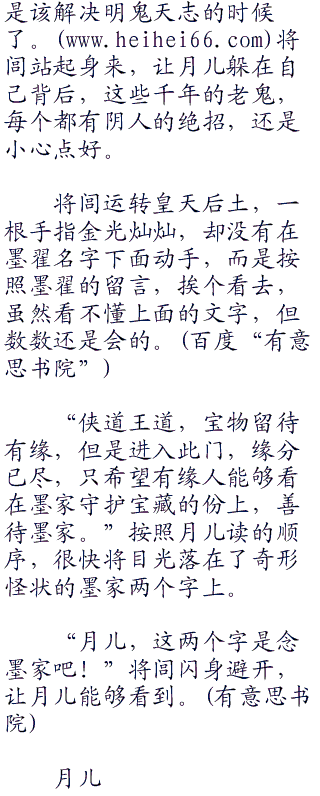 是该解决明鬼天志的时候
了。(www.heihei66.com)将
闾站起身来，让月儿躲在自
己背后，这些千年的老鬼，
每个都有阴人的绝招，还是
小心点好。
将闾运转皇天后土，一
根手指金光灿灿，却没有在
墨翟名字下面动手，而是按
照墨翟的留言，挨个看去，
虽然看不懂上面的文字，但
数数还是会的。(百度“有意
思书院”)
“侠道王道，宝物留待
有缘，但是进入此门，缘分
已尽，只希望有缘人能够看
在墨家守护宝藏的份上，善
待墨家。”按照月儿读的顺
序，很快将目光落在了奇形
怪状的墨家两个字上。
“月儿，这两个字是念
墨家吧！”将闾闪身避开，
让月儿能够看到。(有意思书
院)
月儿